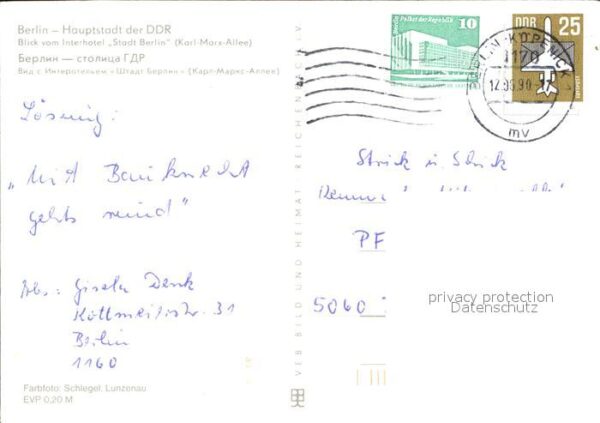 Berlin – Hauptstadt der DDR
Blick vom Interhotel „Stadt Berlin" (Karl-Marx-Allee)
Берлин — столица ГДР
Вид с Интеротелъм «Штадт Берлин» (Карл-Маркс-Аллее)
Lösung:
„Mit Bauknecht
gehts rund"
Abs: Gisela Denk
Kottmeierstr. 31
Berlin
1160
Farbfoto: Schlegel, Lunzenau
EVP 0,20 M
VEB BILD UND HEIMAT REICHENBACH I.V.
Berlin, Palast der Republik
10
DDR
DDR
25
LUFTPOST
BERLIN-KÖPENICK 1
1170
12.06.90
mv
Strick u. Stick
PF
5060
privacy protection
Datenschutz